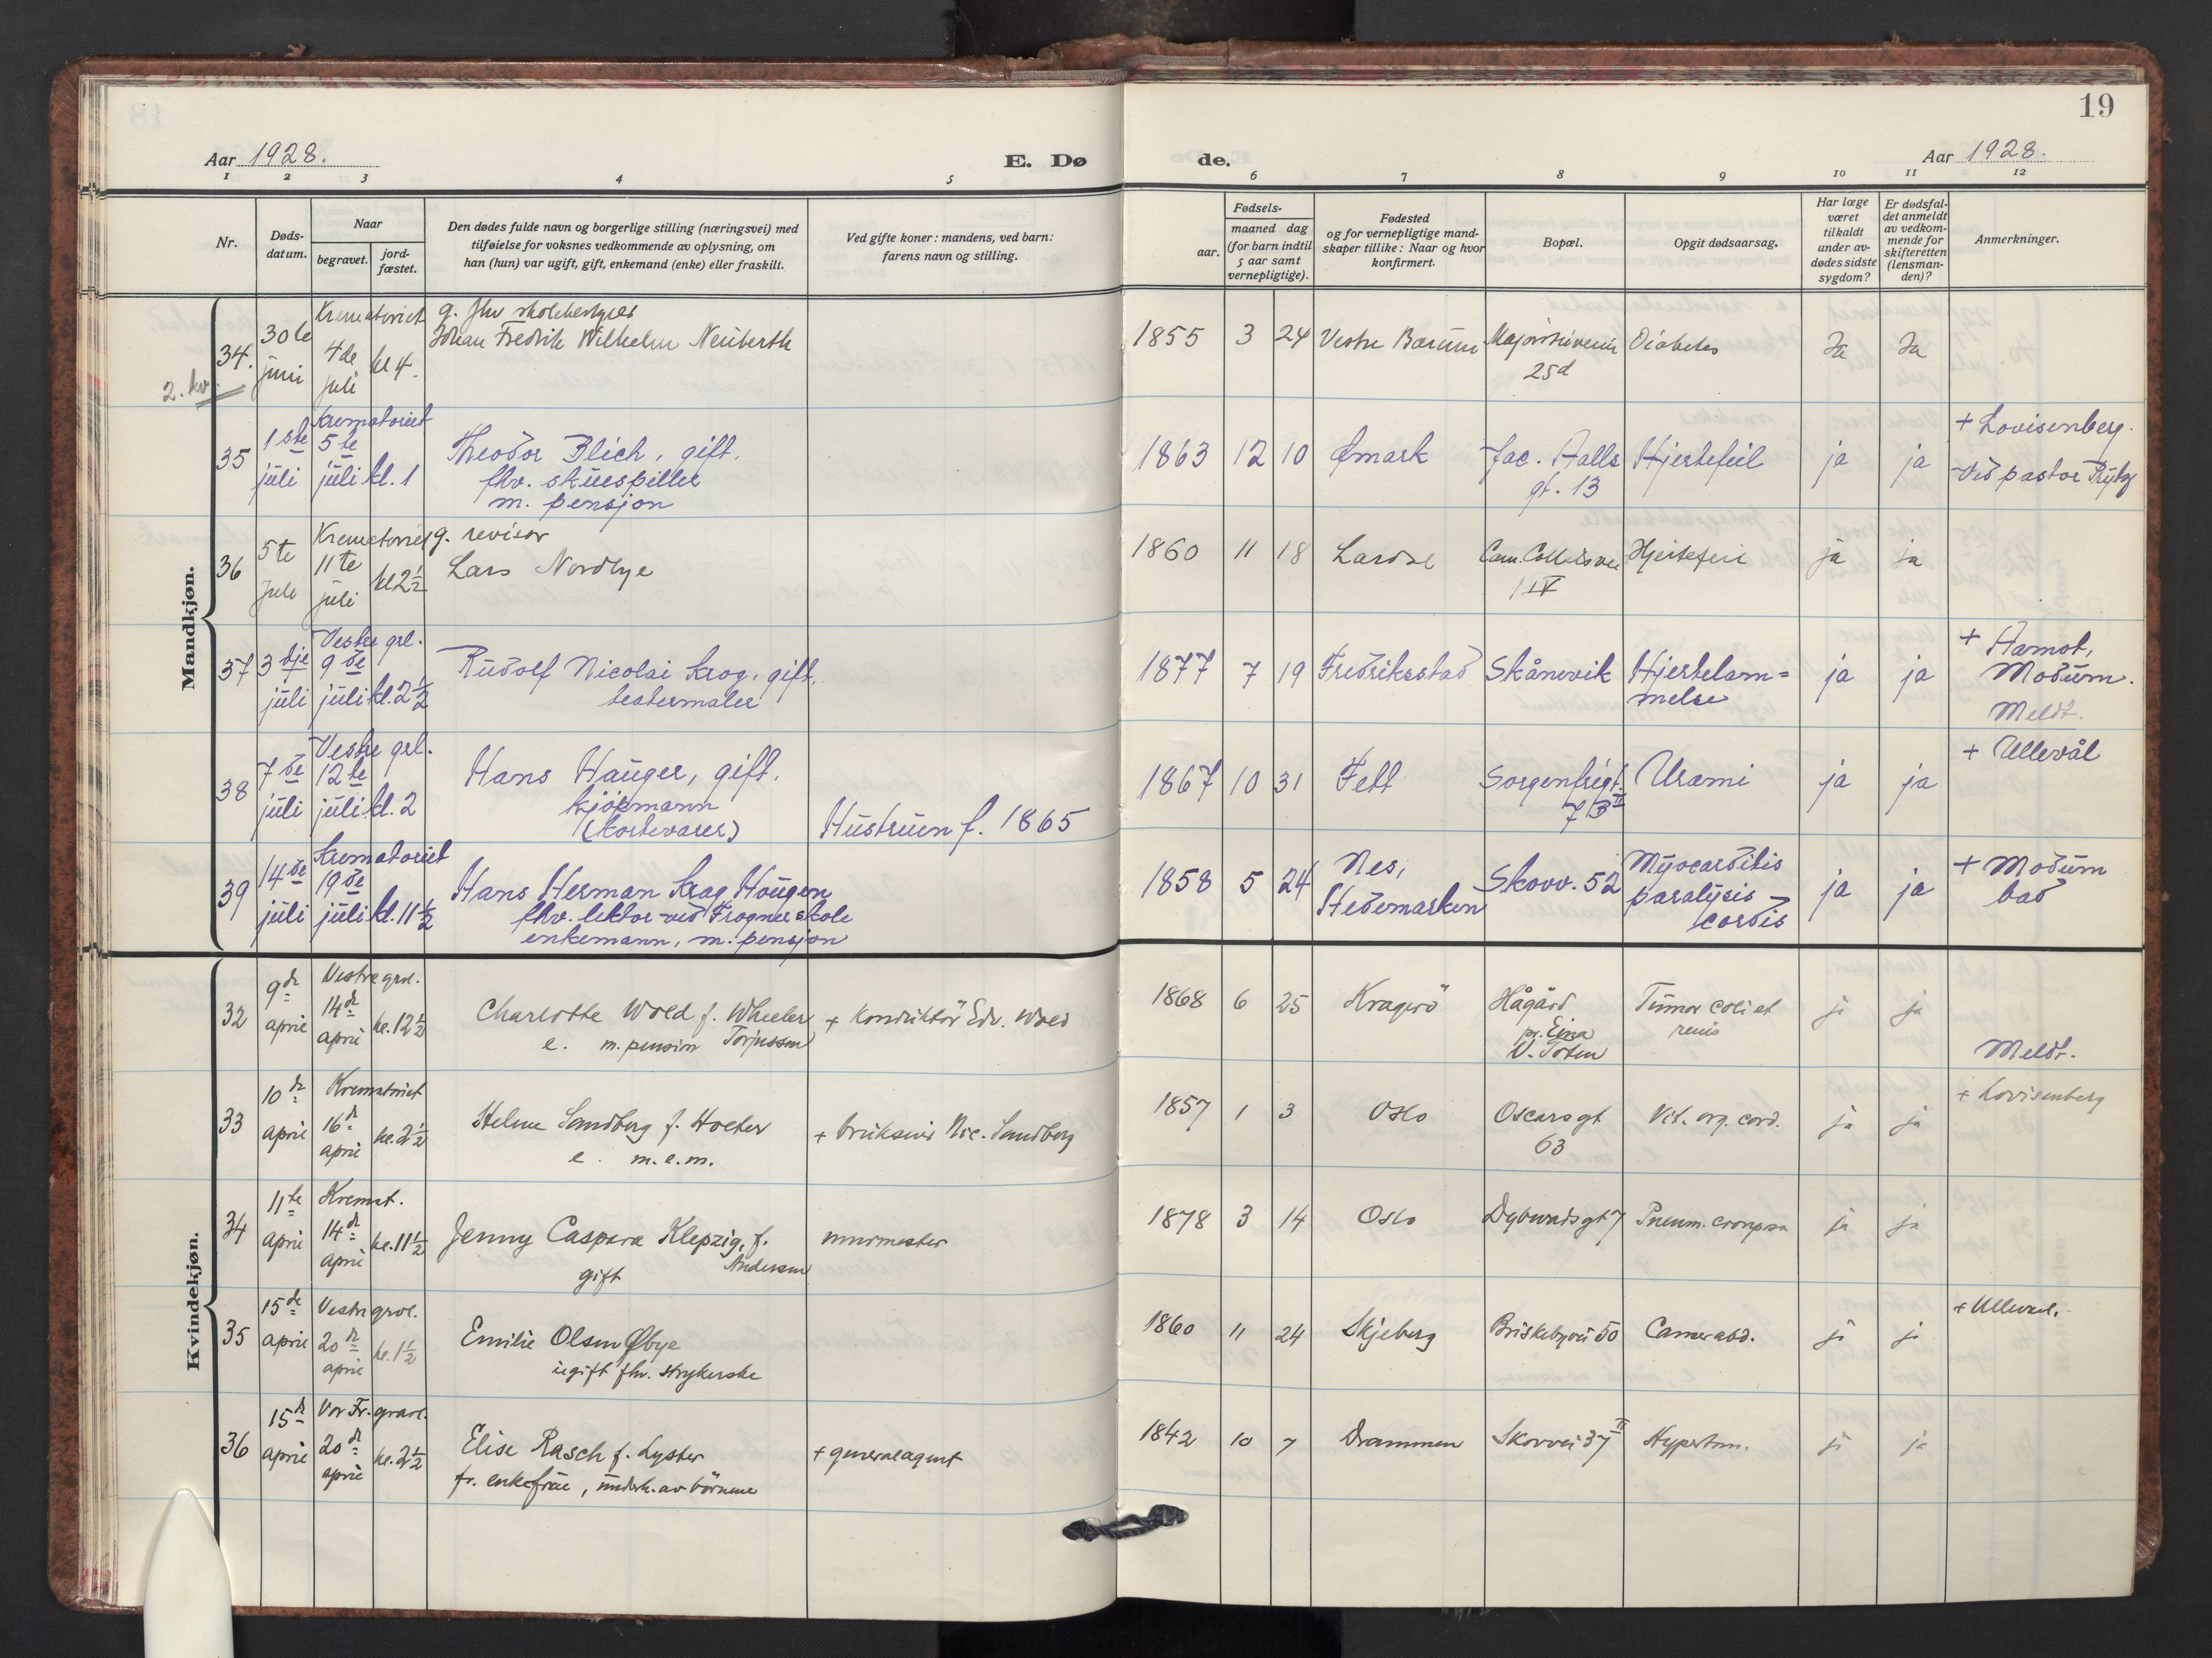 19
Aar 1928.
E. Dø
de.
Aar 1928.
1 2 3 4 5
6 7 8 9 10 11 12
Nr.
Døds-
datum.
Naar
begravet.
jord-
fæstet.
Den dødes fulde navn og borgerlige stilling (næringsvei) med
tilføielse for voksnes vedkommende av oplysning, om
han (hun) var ugift, gift, enkemand (enke) eller fraskilt.
Ved gifte koner: mandens, ved barn:
farens navn og stilling.
Fødsels-
aar.
maaned dag
(for barn indtil
5 aar samt
vernepligtige).
Fødested
og for vernepligtige mand-
skaper tillike: Naar og hvor
konfirmert.
Bopæl.
Opgit dødsaarsag.
Har læge
været
tilkaldt
under av-
dødes sidste
sygdom?
Er dødsfal-
det anmeldt
av vedkom-
mende for
skifteretten
(lensman-
den)?
Anmerkninger.
Mandkjøn.
34.
2. kv.
30te
juni
Krematoriet
4de
juli
kl 4.
g. fhv
Johan Fredrik Wilhelm Neuberth
1855 3 24 Vestre Bærum
25d
Diabetes
Ja Ja
35
1ste
juli
Krematoriet
5te
juli
kl. 1
Theodor Blich, gift.
fhv. skuespiller
m. pensjon
1863 12 10 Ømark
Jac. Aalls
gt. 13
Hjertefeil
ja ja
+ Lovisenberg.
Ved pastor
36
5te
juli
Krematoriet
11te
juli
kl 2 1/2
g. revisor
Lars Nordbye
1860 11 18 Lardal
Cam. Colletsvei
1 IV
Hjertefeil
ja ja
37
3dje
juli
Vestre grl.
9de
juli
kl. 2 1/2
Rudolf Nicolai Krog, gift.
teatermaler
1877 7 19 Fredriksstad
Skånevik
Hjertelam=
melse
ja ja
+ Åmot,
Modum.
Meldt.
38
7de
juli
Vestre grl.
12te
juli
kl. 2
Hans Hauger, gift.
kjøpmann
(kortevarer)
Hustruen f. 1865
1867 10 31 Fett
Sorgenfrigt.
Uræmi
ja ja
+ Ullevål
39
14de
juli
Krematoriet
19de
juli
kl. 11 1/2
Hans Herman Krag Hougen
fhv. lektor ved Frogner skole
enkemann, m. pensjon
1858 5 24
Nes,
Hedemarken
Skovv. 52
Myocarditis
paralysis
cordis
ja ja
+ Modum
bad
Kvindekjøn.
32
9de
april
Vestre grvl.
14de
april
kl. 12 1/2
Charlotte Wold f. Wheeler
Torjussen
e. m. pension
+ konduktör Edv. Wold
1868 6 25 Kragerö
Hågård
pr. Eina
V. Toten
Tumor coli et
renis
ja ja
Meldt.
33
10de
april
Krematoriet
16de
april
kl. 2 1/2
Helene Sandberg f. Hoeter
e. m. e. m.
+ brukseier Nic. Sandberg
1857 1 3 Oslo
Oscarsgt
63
Vit. org. cord.
ja ja
+ Lovisenberg
34
11te
april
Kremat.
14de
april
kl. 11 1/2
Jenny Caspara Klepzig, f.
Andersen
gift
murmester
1878 3 14 Oslo
Dybwadsgt 7
Pneum. crouposa
ja ja
35
15de
april
Vestre grvl.
20de
april
kl. 1 1/2
Emilie Olsen Øbye
ugift fhv. strykerske
1860 11 24 Skjeberg
Briskebyvei 50
Cancer abd.
ja ja
+ Ullevaal.
36
15de
april
Vor Fr. gravl.
20de
april
kl. 2 1/2
Elise Rasch f. Lyster
fr. enkefrue, underh. av börnene
+ generalagent
1842 10 7 Drammen
Skovvei 37 II
Hyperton.
ja ja